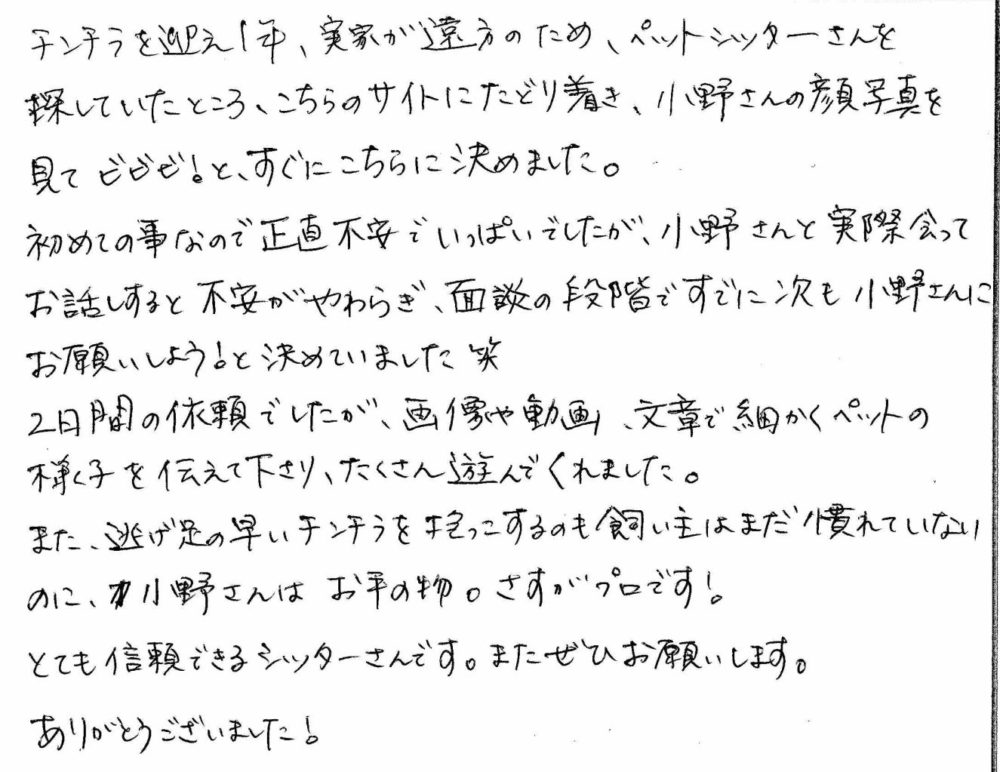 チンチラを迎え1年、実家が遠方のため、ペットシッターさんを
探していたところ、こちらのサイトにたどり着き、小野さんの顔写真を
見てビビビ!と、すぐにこちらに決めました。
初めての事なので正直不安でいっぱいでしたが、小野さんと実際会って
お話しすると不安がやわらぎ、面談の段階ですでに次も小野さんに
お願いしよう!と決めていました笑
2日間の依頼でしたが、画像や動画、文章で細かくペットの
様子を伝えて下さり、たくさん遊んでくれました。
また、逃げ足の早いチンチラを抱っこするのも飼い主はまだ慣れていない
のに、小野さんはお手の物。さすがプロです!
とても信頼できるシッターさんです。またぜひお願いします。
ありがとうございました!